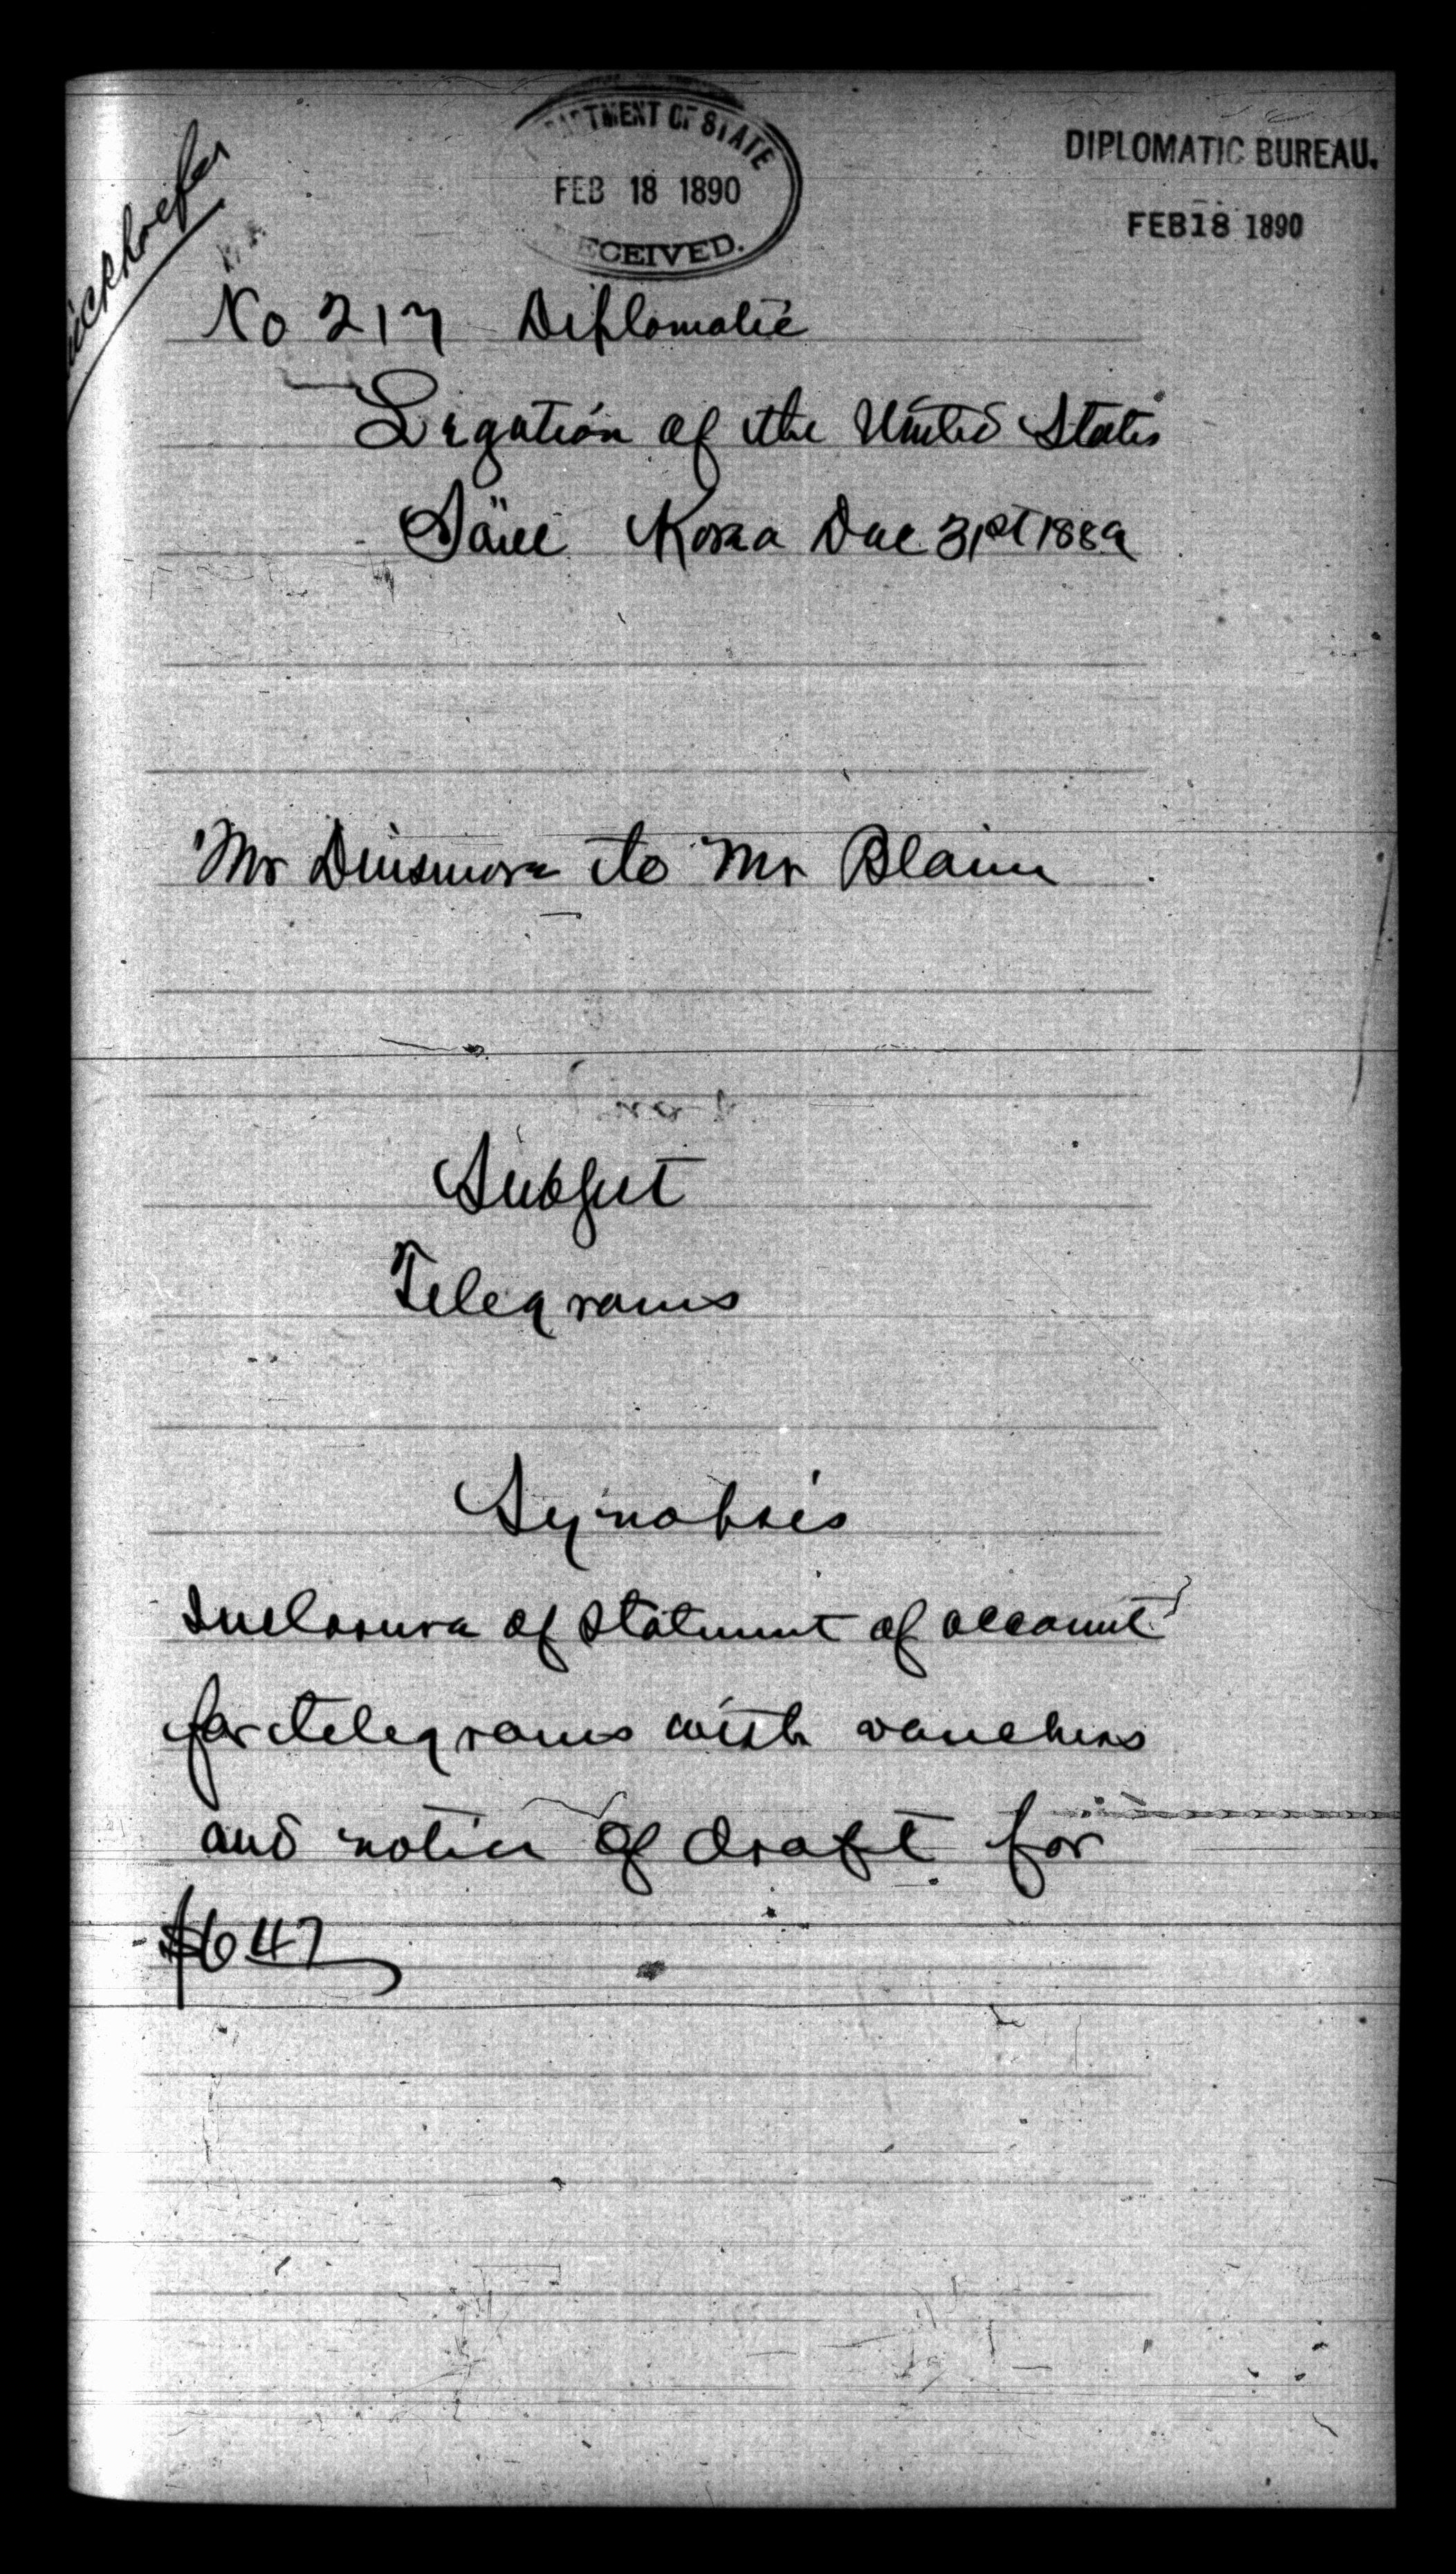 DEPARTMENT OF STATE
FEB 18 1890
RECEIVED.
DIPLOMATIC BUREAU.
FEB 18 1890
No 217 Diplomatic
Legation of the United States
Söul Korea Dec 31st 1889
Mr Dinsmore to Mr Blaine
Subject
Telegrams
Synopsis
Inclosure of statement of account
for telegrams with vouchers
and notice of draft for
$647